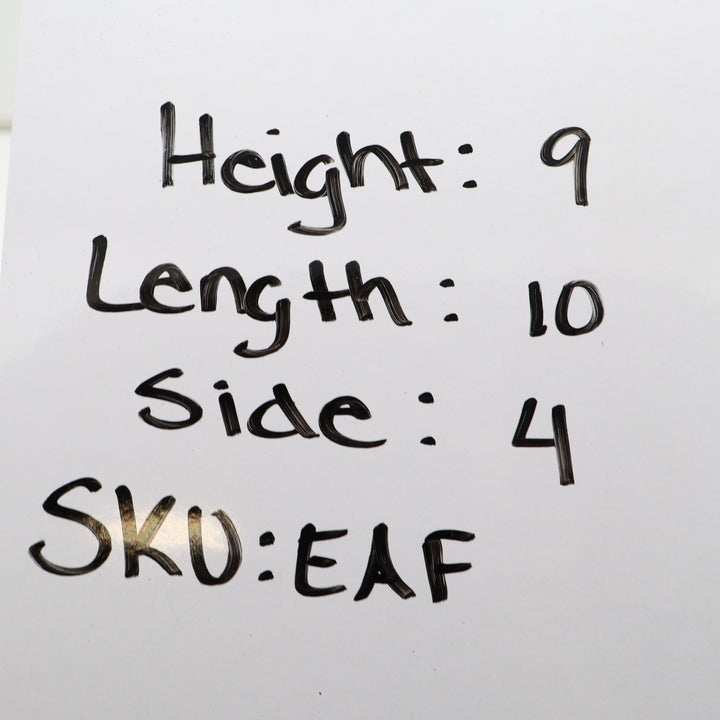 Height: 9
Length: 10
Side: 4
SKU: EAF